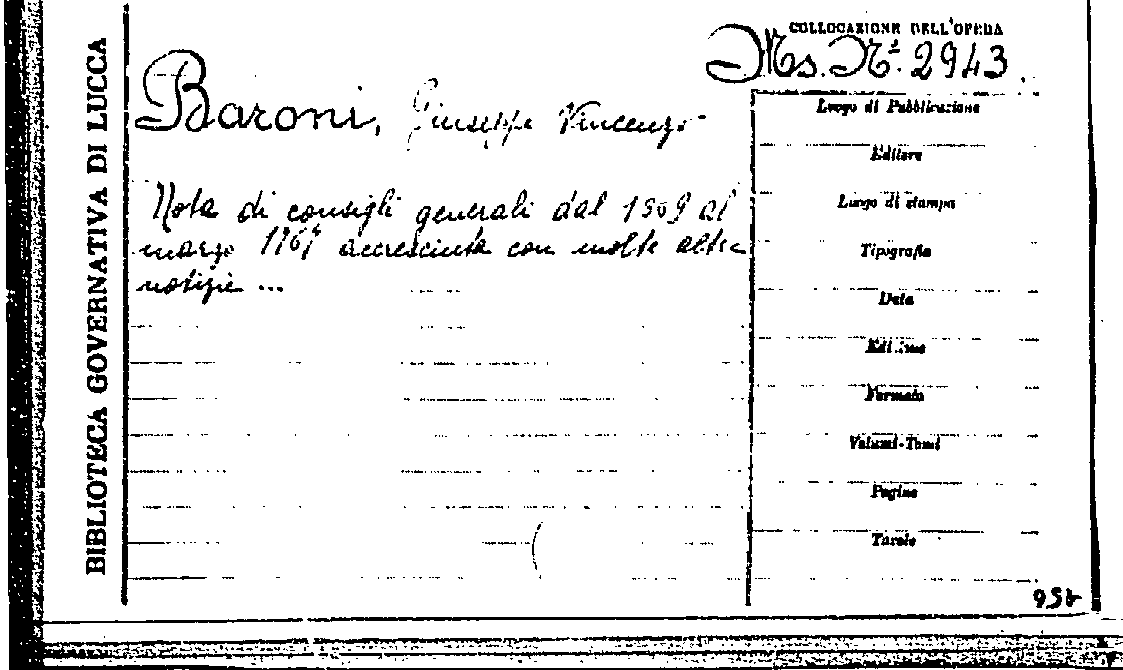 BIBLIOTECA GOVERNATIVA DI LUCCA
COLLOCAZIONE DELL'OPERA
Ms. Nº. 2943.
Baroni, Giuseppe Vincenzo
Nota di consigli generali dal 1369 al
marzo accresciuta con molte altre
notizie ...
Luogo di Pubblicazione
Editore
Luogo di stampa
Tipografia
Data
Edizione
Formato
Volumi-Tomi
Pagine
Tavole